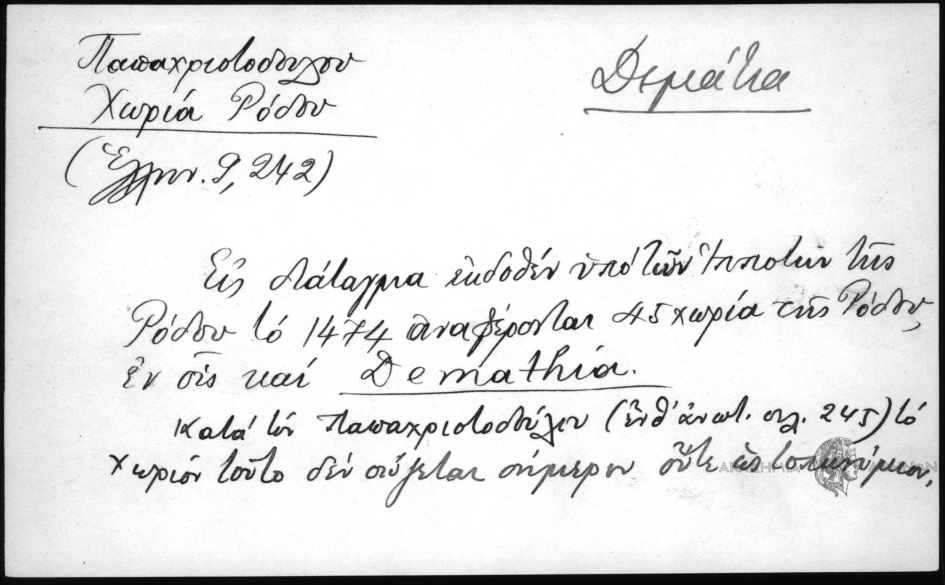 Παπαχριστοδούλου
Χωριά Ρόδου
(Ἑλλην. 9, 242)
Δεμάτια
Εἰς διάταγμα ἐκδοθέν ὑπό τῶν Ἱπποτῶν τῆς
Ρόδου τό 1474 ἀναφέρονται 45 χωρία τῆς Ρόδου,
ἐν οἷς καί Demathia.
Κατά τόν Παπαχριστοδούλου (ἔνθ' ἀνωτ. σελ. 245) τό
χωρίον τοῦτο δέν σώζεται σήμερον οὔτε ὡς τοπωνύμιον.
ΑΚΑΔΗΜΙΑ